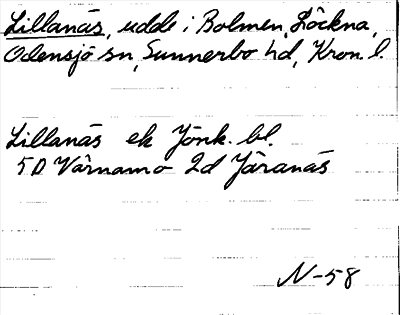 Lillanäs, udde i Bolmen, Löckna,
Odensjö sn, Sunnerbo hd, Kron. l.
Lillanäs ek Jönk. bl.
5D Värnamo 2d Järanäs
N-58